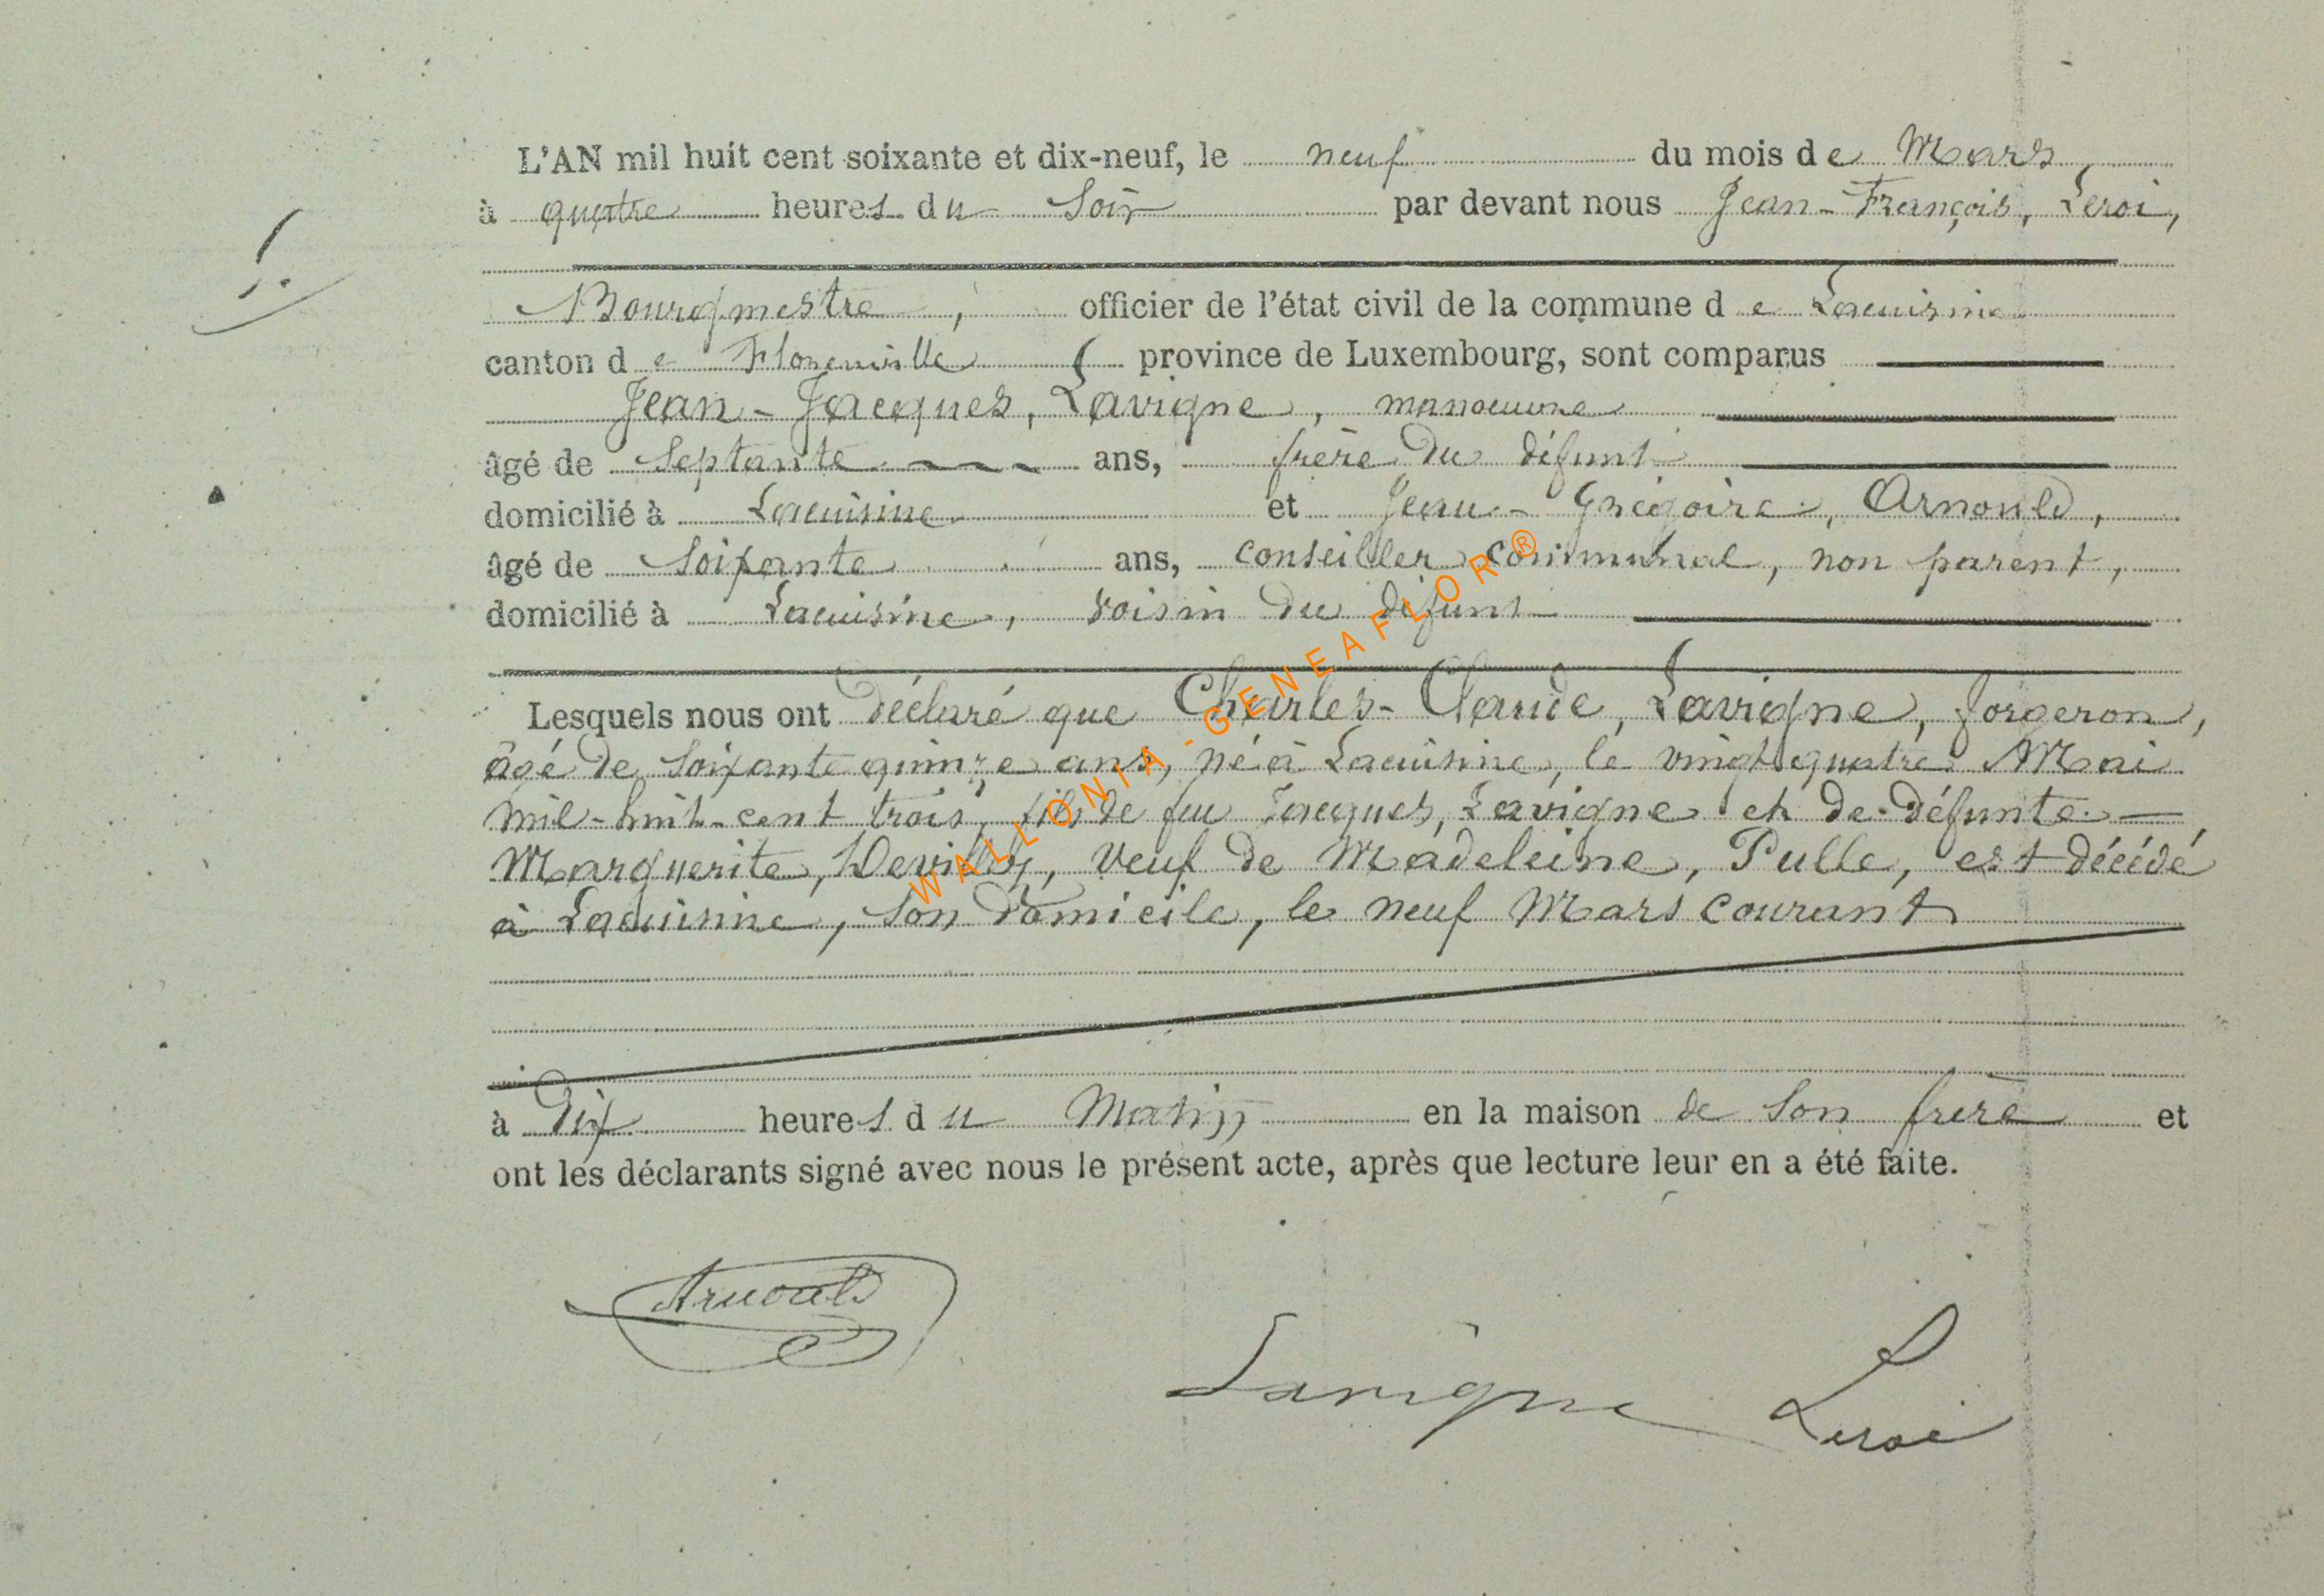 L'AN mil huit cent soixante et dix-neuf, le neuf du mois de Mars,
à quatre heures du Soir par devant nous Jean-François, Leroi,
1.
Bourgmestre, officier de l'état civil de la commune de Lacuisine
canton de Florenville, province de Luxembourg, sont comparus
Jean-Jacques, Lavigne, manoeuvre
âgé de Septante ans, frère du défunt
domicilié à Lacuisine et Jean-Grégoire, Arnould,
âgé de Soixante ans, conseiller communal, non parent,
domicilié à Lacuisine, voisin du défunt
Lesquels nous ont déclaré que Charles-Claude, Lavigne, forgeron,
âgé de Soixante quinze ans, né à Lacuisine, le vingt quatre Mai
mil-huit-cent trois, fils de feu Jacques, Lavigne et de défunte
Marguerite, Devilly, veuf de Madeleine, Pulle, est décédé
à Lacuisine, son domicile, le neuf Mars courant
à Dix heures du Matin en la maison de son frère et
ont les déclarants signé avec nous le présent acte, après que lecture leur en a été faite.
Arnould
Lavigne Leroi
WALLONIA-GENEAFLOR®